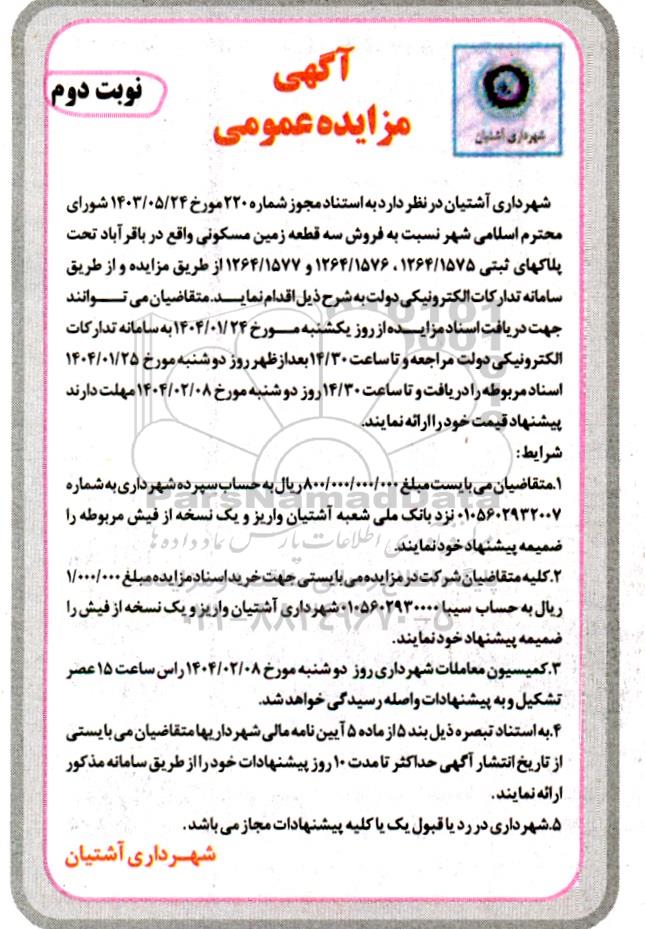 آگهی
مزایده عمومی
نوبت دوم
شهرداری آشتیان
شهرداری آشتیان در نظر دارد به استناد مجوز شماره ۲۲۰ مورخ ۱۴۰۳/۰۵/۲۴ شورای
محترم اسلامی شهر نسبت به فروش سه قطعه زمین مسکونی واقع در باقرآباد تحت
پلاکهای ثبتی ۱۲۶۴/۱۵۷۵ ، ۱۲۶۴/۱۵۷۶ و ۱۲۶۴/۱۵۷۷ از طریق مزایده و از طریق
سامانه تدارکات الکترونیکی دولت به شرح ذیل اقدام نماید. متقاضیان می توانند
جهت دریافت اسناد مزایده از روز یکشنبه مورخ ۱۴۰۴/۰۱/۲۴ به سامانه تدارکات
الکترونیکی دولت مراجعه و تا ساعت ۱۴/۳۰ بعدازظهر روز دوشنبه مورخ ۱۴۰۴/۰۱/۲۵
اسناد مربوطه را دریافت و تا ساعت ۱۴/۳۰ روز دوشنبه مورخ ۱۴۰۴/۰۲/۰۸ مهلت دارند
پیشنهاد قیمت خود را ارائه نمایند.
شرایط:
۱.متقاضیان می بایست مبلغ ۸۰۰/۰۰۰/۰۰۰/۰۰۰ ریال به حساب سپرده شهرداری به شماره
۰۱۰۵۶۰۲۹۳۲۰۰۷ نزد بانک ملی شعبه آشتیان واریز و یک نسخه از فیش مربوطه را
ضمیمه پیشنهاد خود نمایند.
۲.کلیه متقاضیان شرکت در مزایده می بایستی جهت خرید اسناد مزایده مبلغ ۱/۰۰۰/۰۰۰
ریال به حساب سیبا ۰۱۰۵۶۰۲۹۳۰۰۰۰ شهرداری آشتیان واریز و یک نسخه از فیش را
ضمیمه پیشنهاد خود نمایند.
۳.کمیسیون معاملات شهرداری روز دوشنبه مورخ ۱۴۰۴/۰۲/۰۸ راس ساعت ۱۵ عصر
تشکیل و به پیشنهادات واصله رسیدگی خواهد شد.
۴.به استناد تبصره ذیل بند ۵ از ماده ۵ آیین نامه مالی شهرداریها متقاضیان می بایستی
از تاریخ انتشار آگهی حداکثر تا مدت ۱۰ روز پیشنهادات خود را از طریق سامانه مذکور
ارائه نمایند.
۵.شهرداری در رد یا قبول یک یا کلیه پیشنهادات مجاز می باشد.
شهرداری آشتیان
ParsNamadData
۰۲۱-۸۸۳۴۹۶۷۰-۵